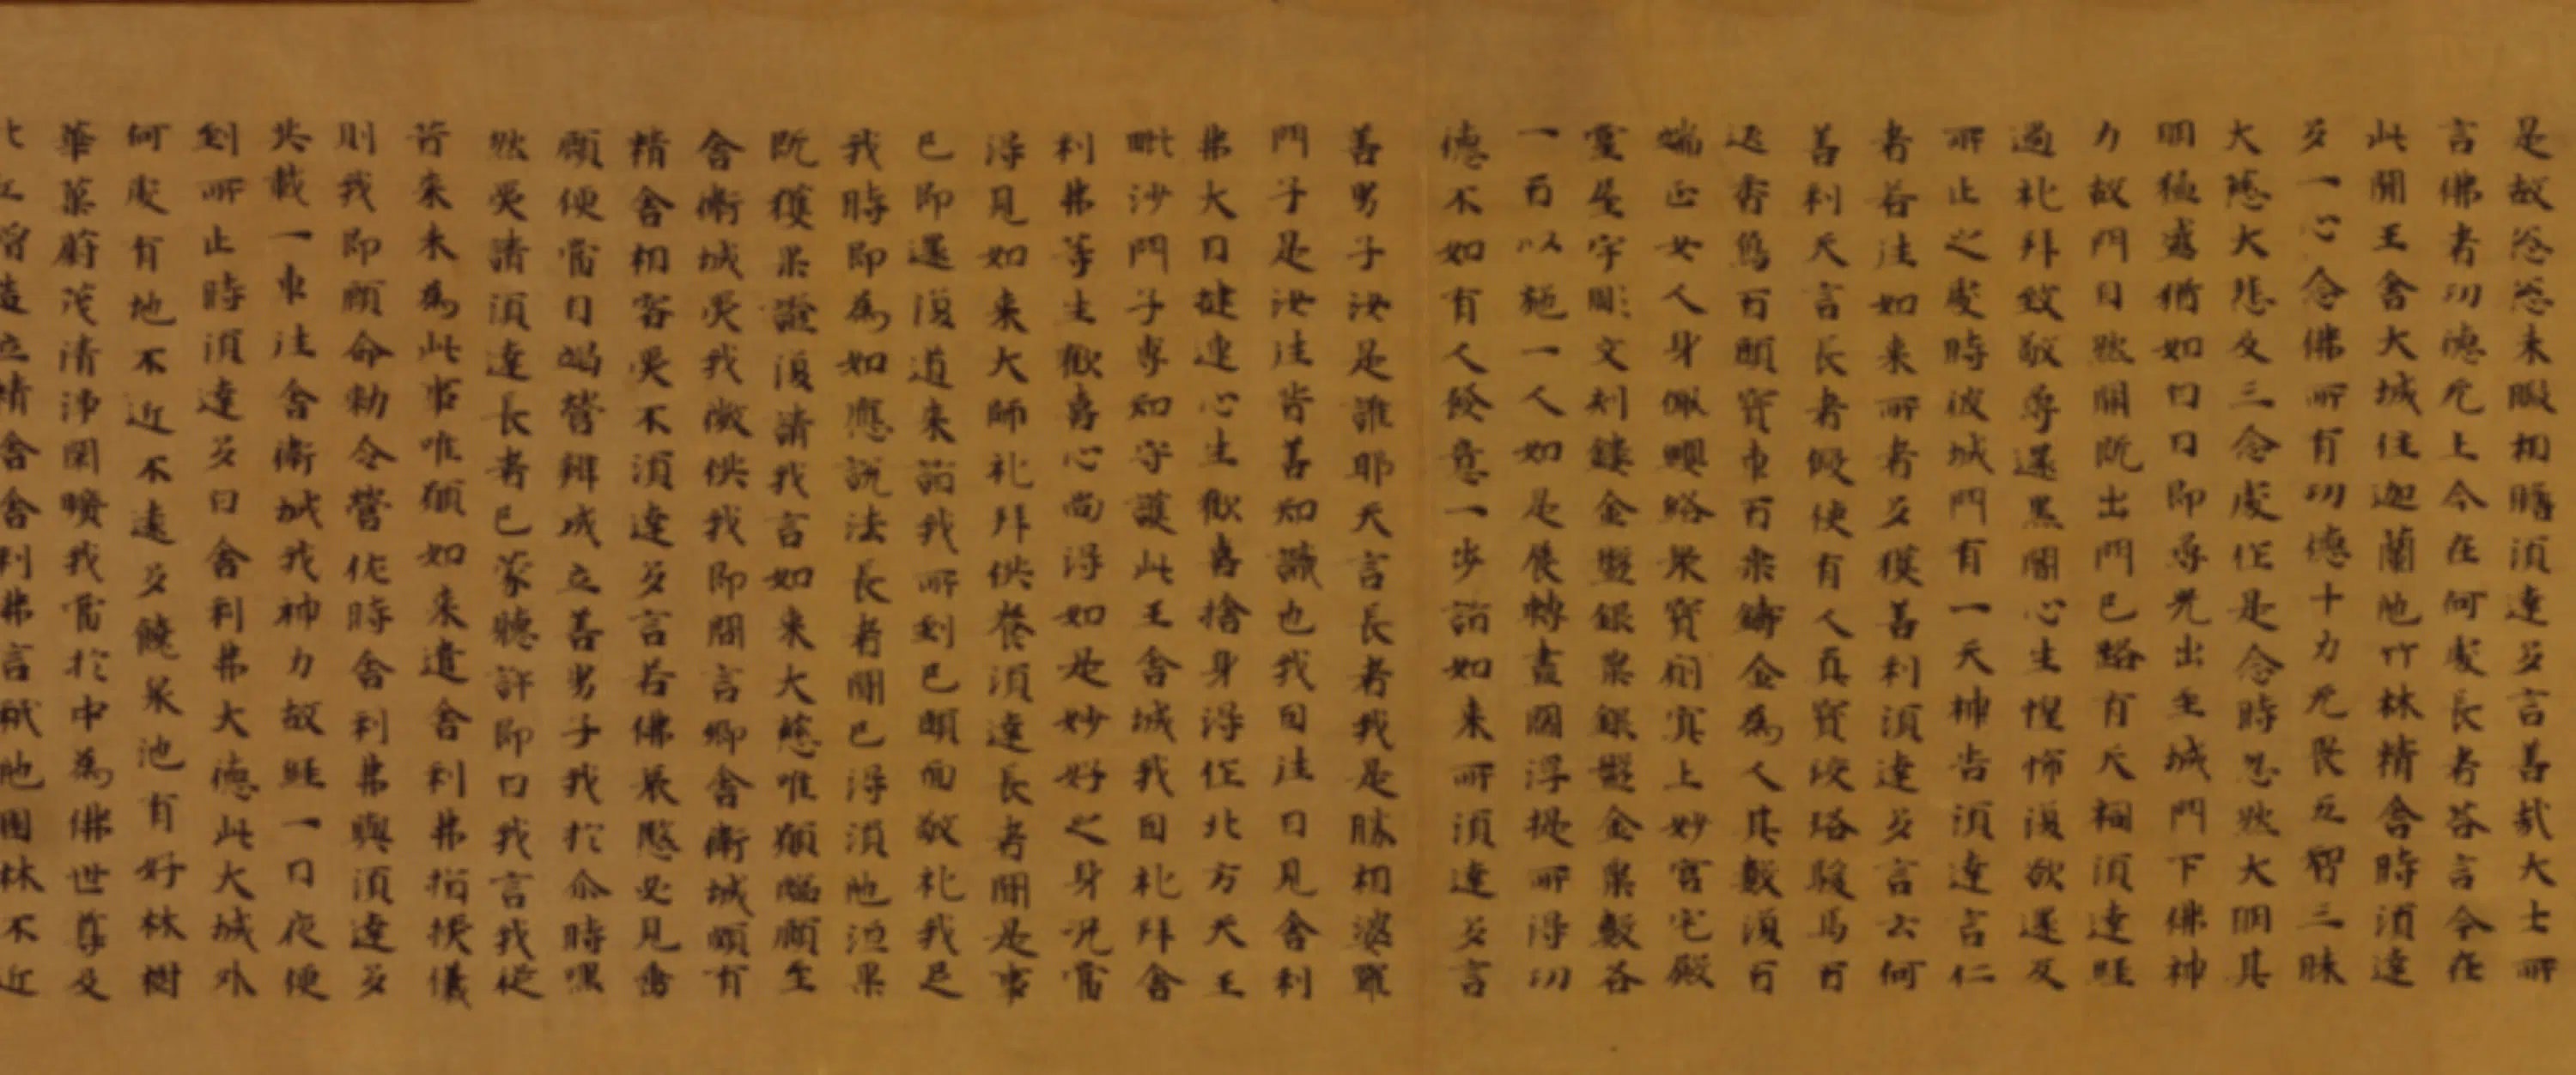 是故忩忩未暇相瞻須達多言善哉大士所
言佛者功德无上今在何處長者答言今在
此間王舍大城住迦蘭陁竹林精舍時須達
多一心念佛所有功德十力无畏五智三昧
大慈大悲及三念處作是念時忽然大明其
明極盛猶如白日即尋光出至城門下佛神
力故門自然開既出門已路有天祠須達經
過礼拜致敬尋還黑闇心生惶怖復欲還反
所止之處時彼城門有一天神告須達言仁
者若往如來所者多獲善利須達多言云何
善利天言長者假使有人真寶挍珞駿馬百
疋香象百頭寶車百乘鑄金為人其數復百
端正女人身佩瓔珞衆寶廁窴上妙宮宅殿
堂屋宇彫文刻鏤金盤銀粟銀盤金粟數各
一百以施一人如是展轉盡閻浮提所得功
德不如有人發意一步詣如來所須達多言
善男子汝是誰耶天言長者我是勝相婆羅
門子是汝往昔善知識也我因往日見舍利
弗大目揵連心生歡喜捨身得作北方天王
毗沙門子專知守護此王舍城我因礼拜舍
利弗等生歡喜心尚得如是妙好之身況當
得見如來大師礼拜供養須達長者聞是事
已即還復道來詣我所到已頭面敬礼我足
我時即為如應說法長者聞已得須陁洹果
既獲果證復請我言如來大慈唯願臨顧至
舍衛城受我微供我即問言卿舍衛城頗有
精舍相容受不須達多言若佛哀愍必見垂
顧便當自竭營辦成立善男子我於尒時嘿
然受請須達長者已蒙聽許即白我言我從
昔來未為此事唯願如來遣舍利弗指授儀
則我即顧命勑令營佐時舍利弗與須達多
共載一車往舍衛城我神力故經一日夜便
到所止時須達多白舍利弗大德此大城外
何處有地不近不遠多饒泉池有好林樹
華菓蔚茂清淨閑曠我當於中為佛世尊及
比丘僧造立精舍舍利弗言祇陁園林不近